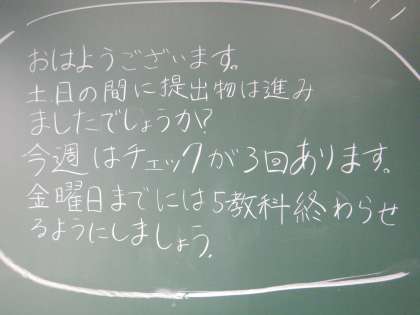 おはようございます。
土日の間に提出物は進み
ましたでしょうか?
今週はチェックが3回あります。
金曜日までには5教科終わらせ
るようにしましょう.